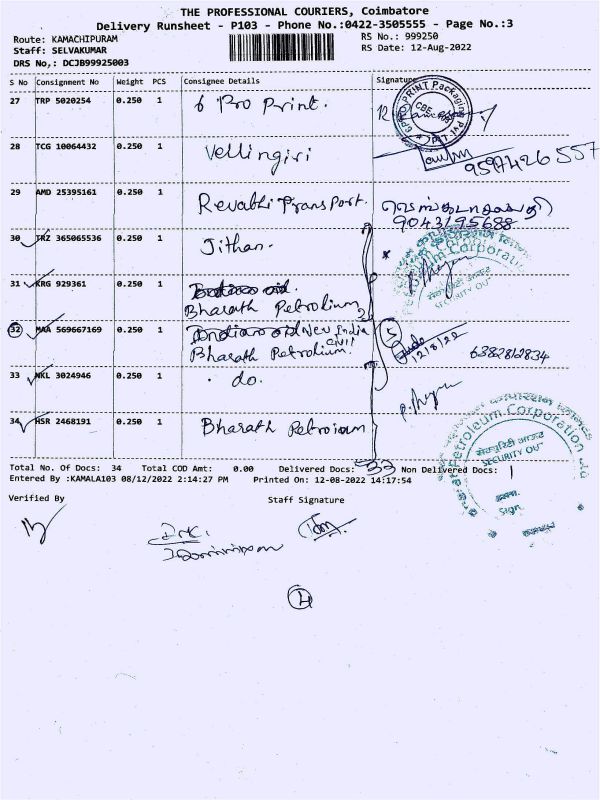 THE PROFESSIONAL COURIERS, Coimbatore
Delivery Runsheet - P103 - Phone No.:0422-3505555 - Page No.:3
Route: KAMACHIPURAM
RS No.: 999250
Staff: SELVAKUMAR
RS Date: 12-Aug-2022
DRS No,: DCJB99925003
S No Consignment No Weight PCS Consignee Details Signature
27 TRP 5020254 0.250 1 6 Pro Print.
28 TCG 10064432 0.250 1 Vellingiri
9597426557
29 AMD 25395161 0.250 1 Revathi Transport.
9043195688
30 TRZ 365065536 0.250 1 Jithan.
31 KRG 929361 0.250 1
Bharath Petrolium
32 MAA 569667169 0.250 1 New India
Bharath Petrolium. civil
5
12/8/22
6382812834
33 NKL 3024946 0.250 1 . do.
34 HSR 2468191 0.250 1 Bharath Petroium
Petroleum Corporation
सेक्युरिटी आऊट
SECURITY OUT
Sign.
Total No. Of Docs: 34 Total COD Amt: 0.00 Delivered Docs: 33 Non Delivered Docs: 1
Entered By :KAMALA103 08/12/2022 2:14:27 PM Printed On: 12-08-2022 14:17:54
Verified By Staff Signature